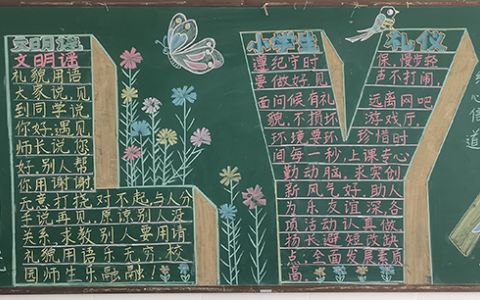 文明谣
文明谣
礼貌用语
大家说,见
到同学说
你好;遇见
师长说您
好,别人帮
你用谢谢,
无意打挠对不起,与人分
手说再见。原谅别人没
关系,求教别人要用请
礼貌用语乐无穷,校
园师生乐融融!
小学生
礼仪
遵纪守时
要做好,见
面问候有礼
貌,不损坏
环境要环
保,慢步轻
声不打闹,
远离网吧
游戏厅,
珍惜时
间每一秒,上课专心
勤动脑,求实创
新风气好,助人
为乐友谊深,各
项活动认真做,
扬长避短改缺
点;全面发展素质
高。